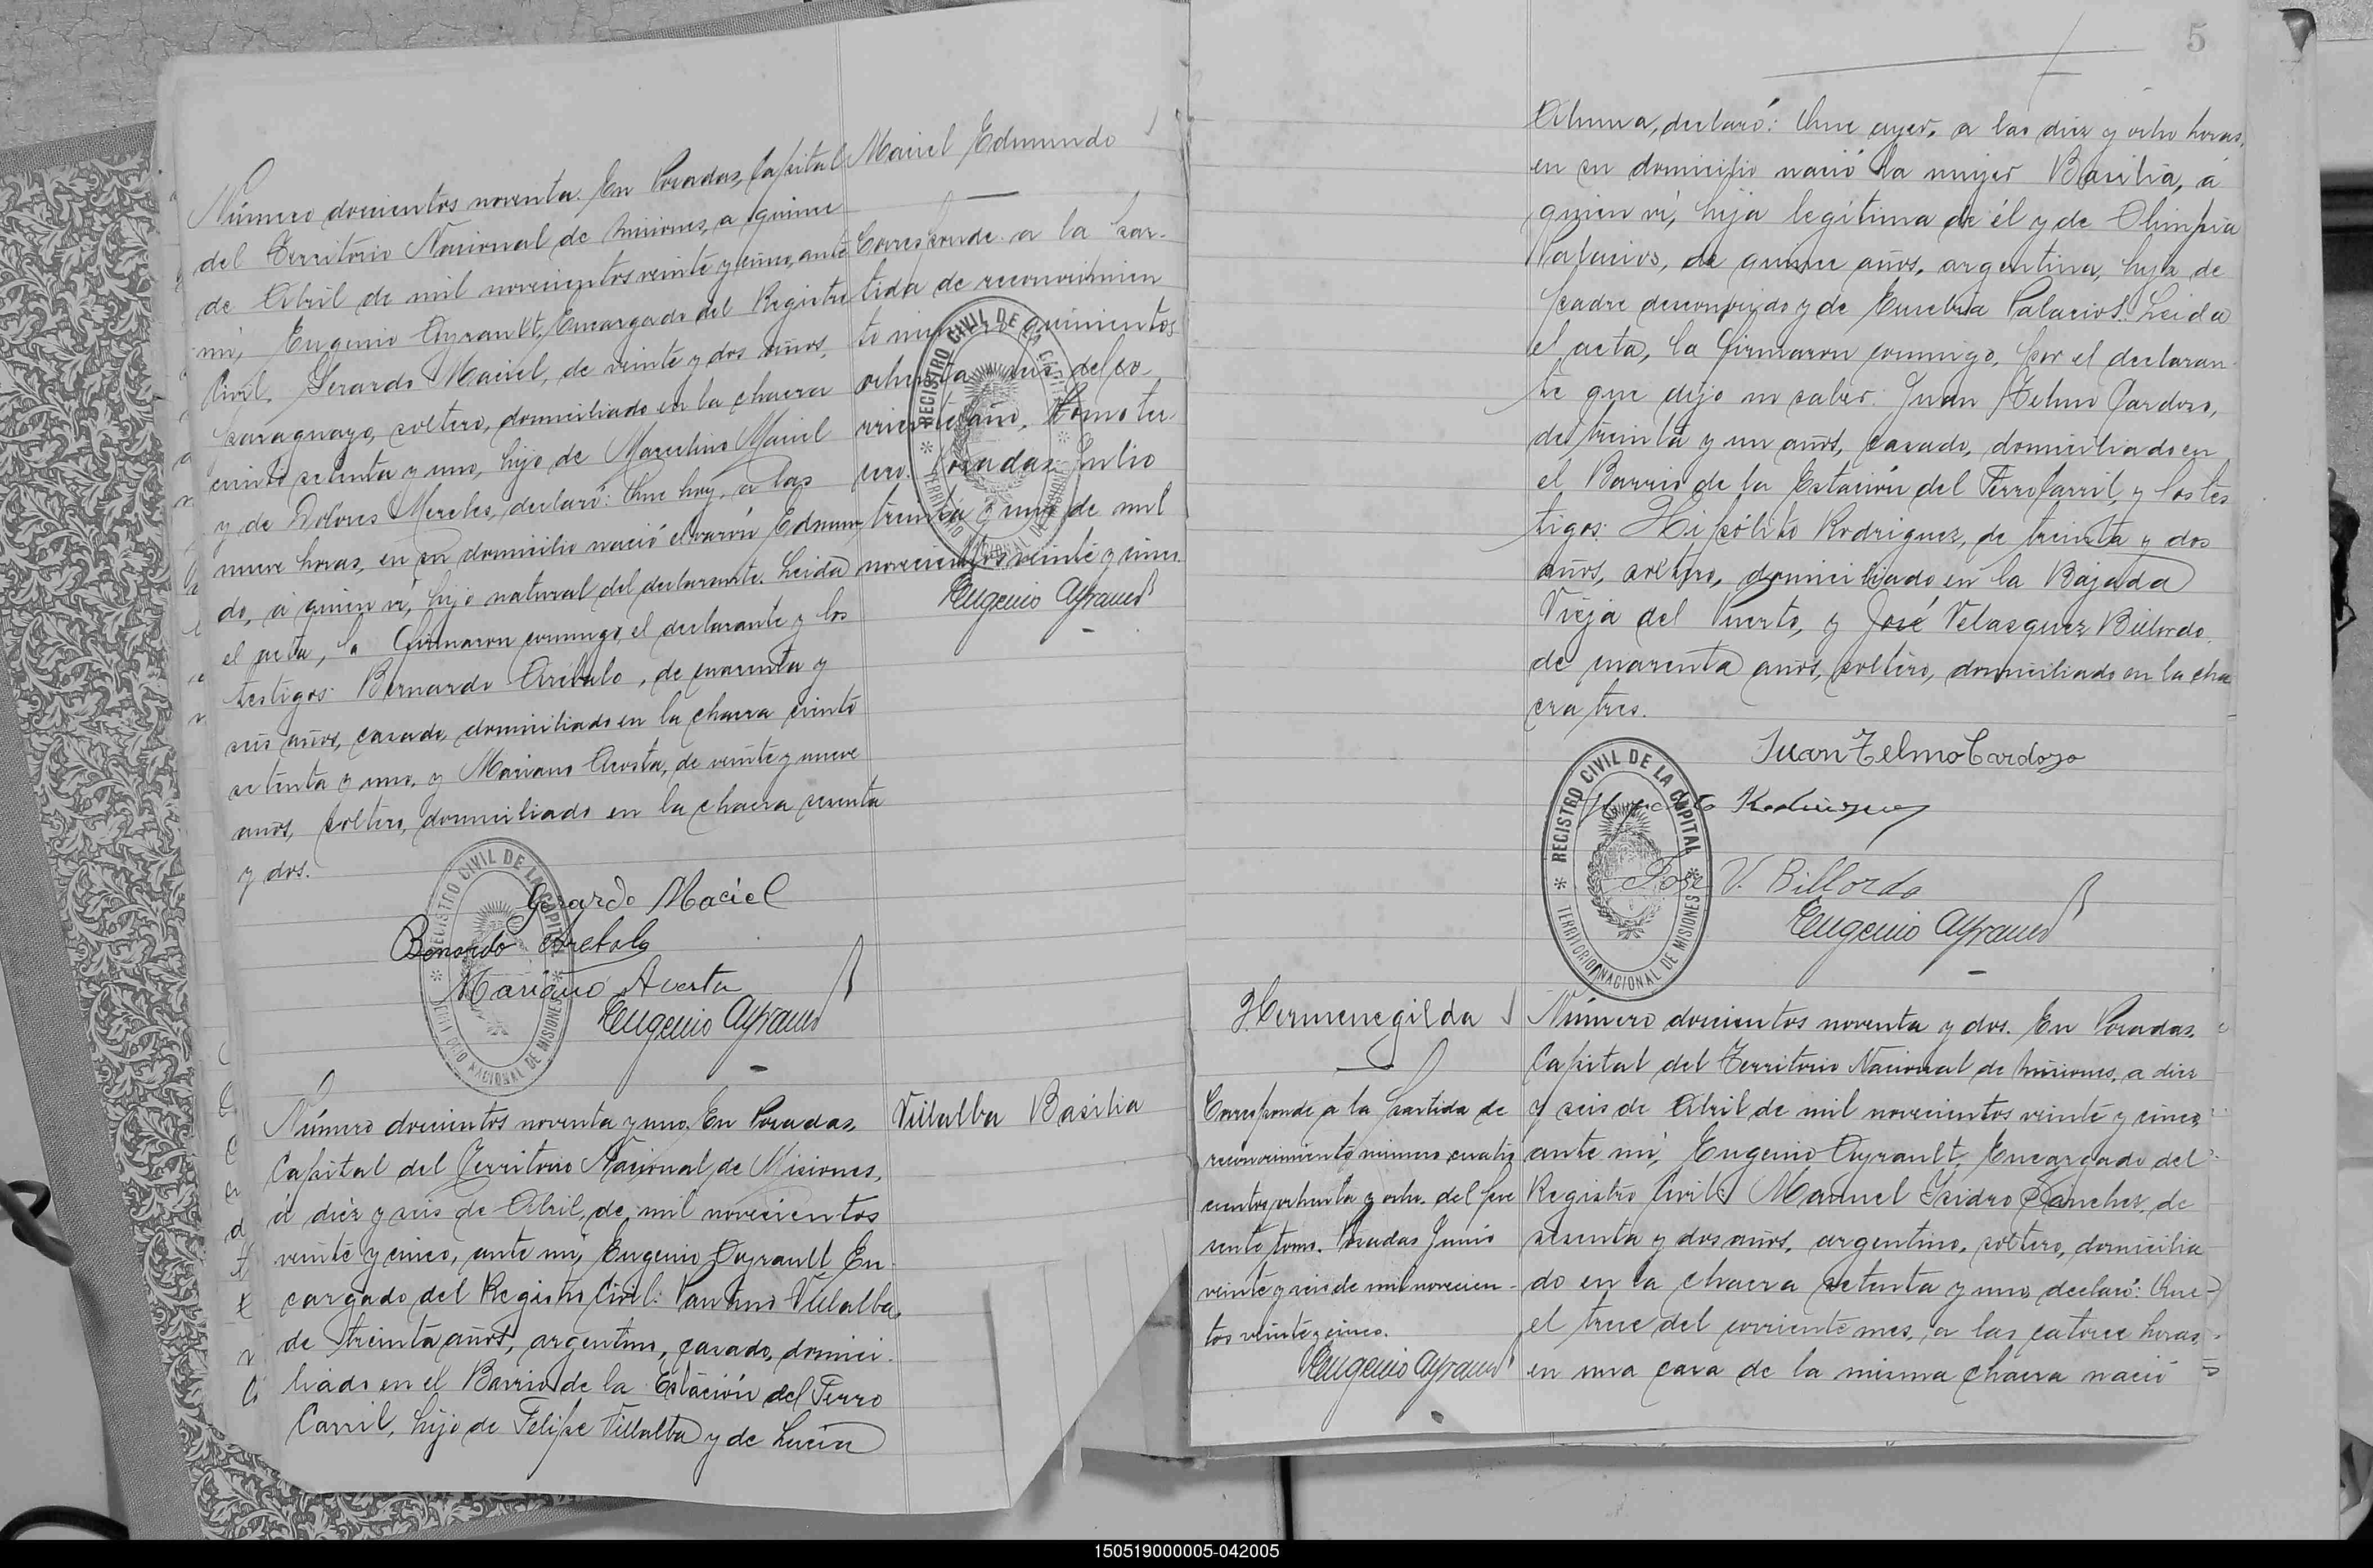 Número doscientos noventa. En Posadas, Capital
del Territorio Nacional de Misiones, a quince
de Abril de mil novecientos veinte y cinco, ante
mi, Eugenio Ayrault, Encargado del Registro
Civil, Gerardo Maciel, de veinte y dos años,
paraguayo, soltero, domiciliado en la chacra
ciento setenta y uno, hijo de Marcelino Maciel
y de Dolores Mereles, declaró: Que hoy, a las
nueve horas, en su domicilio nació el varón Edmun
do, á quien ví, hijo natural del declarante. Leida
el acta, la firmaron conmigo, el declarante y los
testigos: Bernardo Arébalo, de cuarenta y
seis años, casado, domiciliado en la chacra ciento
setenta y uno, y Mariano Acosta, de veinte y nueve
años, soltero, domiciliado en la chacra sesenta
y dos.
Gerardo Maciel
Bernardo Arebalo
Mariano Acosta
Eugenio Ayrault
REGISTRO CIVIL DE LA CAPITAL
TERRITORIO NACIONAL DE MISIONES
Maciel Edmundo
Corresponde a la par-
tida de reconocimien
to quinientos
ochenta del co-
rriente año, Tomo ter
cero. Posadas, Julio
treinta y uno de mil
novecientos veinte y cinco.
Eugenio Ayrault
REGISTRO CIVIL DE LA CAPITAL
TERRITORIO NACIONAL DE MISIONES
Número doscientos noventa y uno. En Posadas,
Capital del Territorio Nacional de Misiones,
á diez y seis de Abril, de mil novecientos
veinte y cinco, ante mi, Eugenio Ayrault, En-
cargado del Registro Civil: Villalba,
de treinta años, argentino, casado, domici-
liado en el Barrio de la Estación del Ferro
Carril, hijo de Felipe Villalba y de Lucía
Villalba Basilia
5
declaró: Que ayer, a las diez y ocho horas,
en su domicilio nació la mujer Basilia, á
quien ví, hija legítima de él y de Olimpia
Palacios, de quince años, argentina, hija de
padre desconocido y de Eusebia Palacios. Leida
el acta, la firmaron conmigo, por el declaran
te que dijo no saber: Juan Telmo Cardozo,
de treinta y un años, casado, domiciliado en
el Barrio de la Estación del Ferro Carril, y los tes
tigos: Hipólito Rodriguez, de treinta y dos
años, soltero, domiciliado en la Bajada
Vieja del Puerto, y José Velasquez Billordo,
de cuarenta años, soltero, domiciliado en la cha
cra tres.
Juan Telmo Cardozo
Hipolito Rodriguez
José V. Billordo
Eugenio Ayrault
REGISTRO CIVIL DE LA CAPITAL
TERRITORIO NACIONAL DE MISIONES
Hermenegilda
Corresponde a la partida de
reconocimiento número cuatro
cientos ochenta y ocho del pre
sente tomo. Posadas Junio
veinte y seis de mil novecien-
tos veinte y cinco.
Eugenio Ayrault
Número doscientos noventa y dos. En Posadas,
Capital del Territorio Nacional de Misiones, a diez
y seis de Abril de mil novecientos veinte y cinco,
ante mí, Eugenio Ayrault, Encargado del
Registro Civil: Manuel Isidro Sanchez, de
sesenta y dos años, argentino, soltero, domicilia
do en la chacra setenta y uno, declaró: Que
el trece del corriente mes, a las catorce horas,
en una casa de la misma chacra nació
150519000005-042005